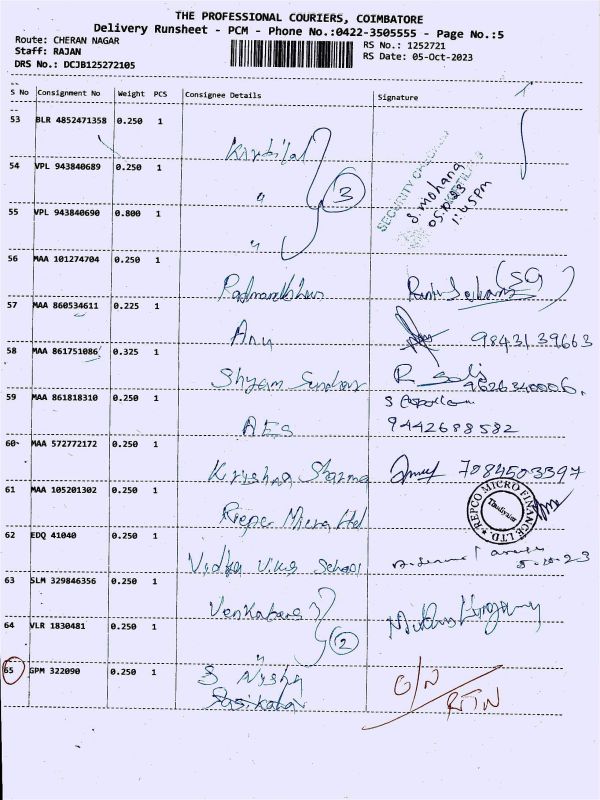 THE PROFESSIONAL COURIERS, COIMBATORE
Delivery Runsheet - PCM - Phone No.:0422-3505555 - Page No.:5
Route: CHERAN NAGAR
RS No.: 1252721
Staff: RAJAN
RS Date: 05-Oct-2023
DRS No.: DCJB125272105
S No Consignment No Weight PCS Consignee Details Signature
53 BLR 4852471358 0.250 1
54 VPL 943840689 0.250 1 " 3 S. mohana
05.10.23
1:45PM
55 VPL 943840690 0.800 1 "
56 MAA 101274704 0.250 1 (SG)
57 MAA 860534611 0.225 1 Anu 98431 39663
58 MAA 861751086 0.325 1 Shyam Sundar R 9626340006.
59 MAA 861818310 0.250 1 AES 9442688582
60 MAA 572772172 0.250 1 Krishna Sharma 7084503397
61 MAA 105201302 0.250 1 Repco Micro REPCO MICRO FINANCE LTD.
62 EDQ 41040 0.250 1 Vidya Vikas School 5-10-23
63 SLM 329846356 0.250 1
64 VLR 1830481 0.250 1 " 2
65 GPM 322090 0.250 1 S Nysha O/N
Sasikala RTN